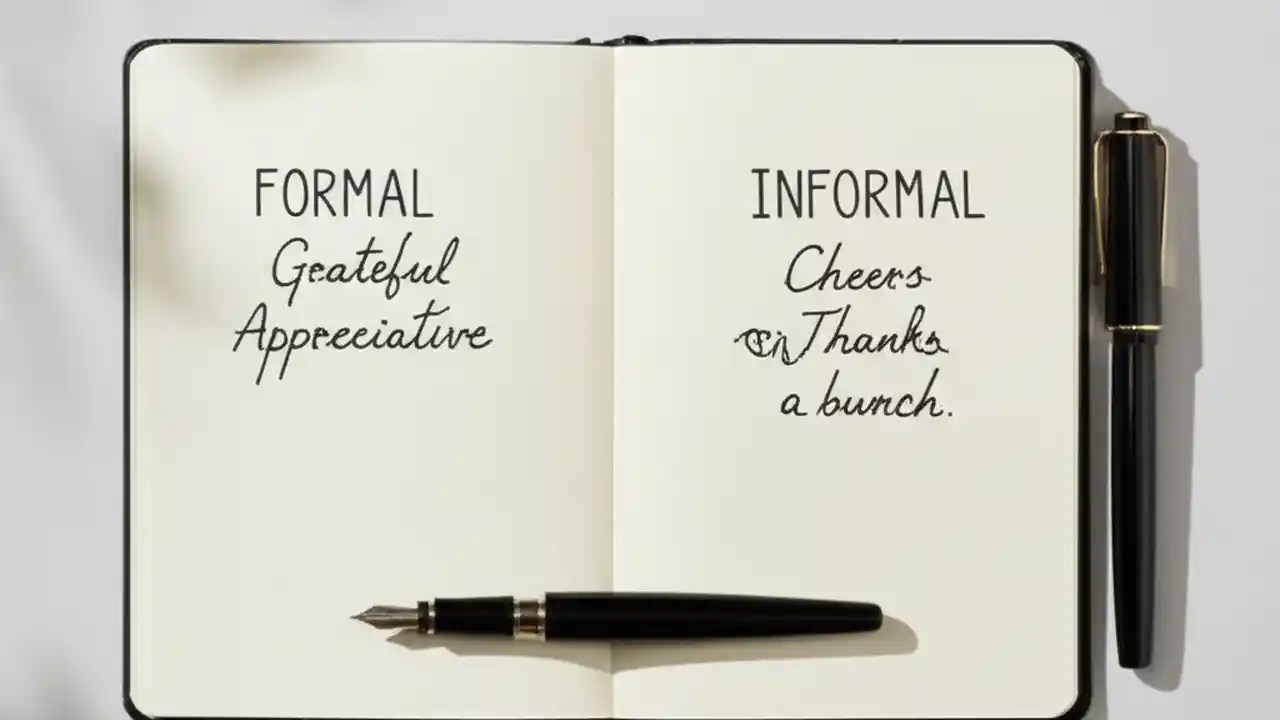 FORMAL
Grateful
Appreciative
INFORMAL
Cheers
Thanks
a bunch.